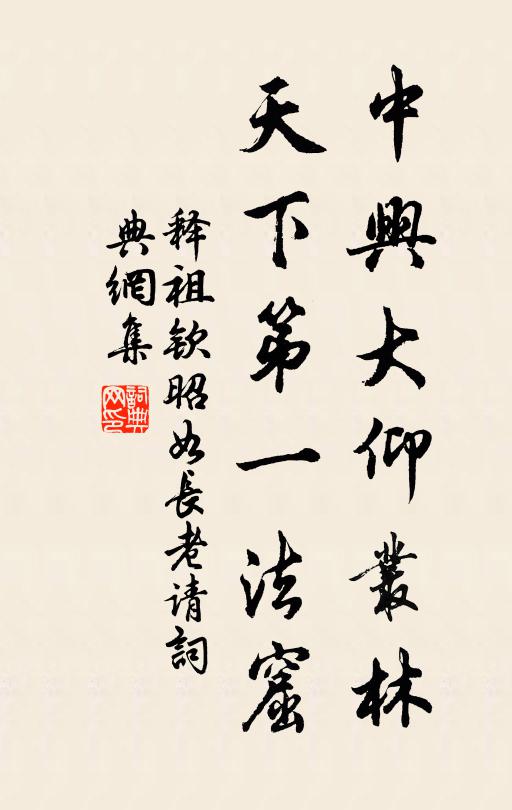 中興大仰叢林
天下第一法窟
释祖钦昭如長老请詞
典網集
詞典网印